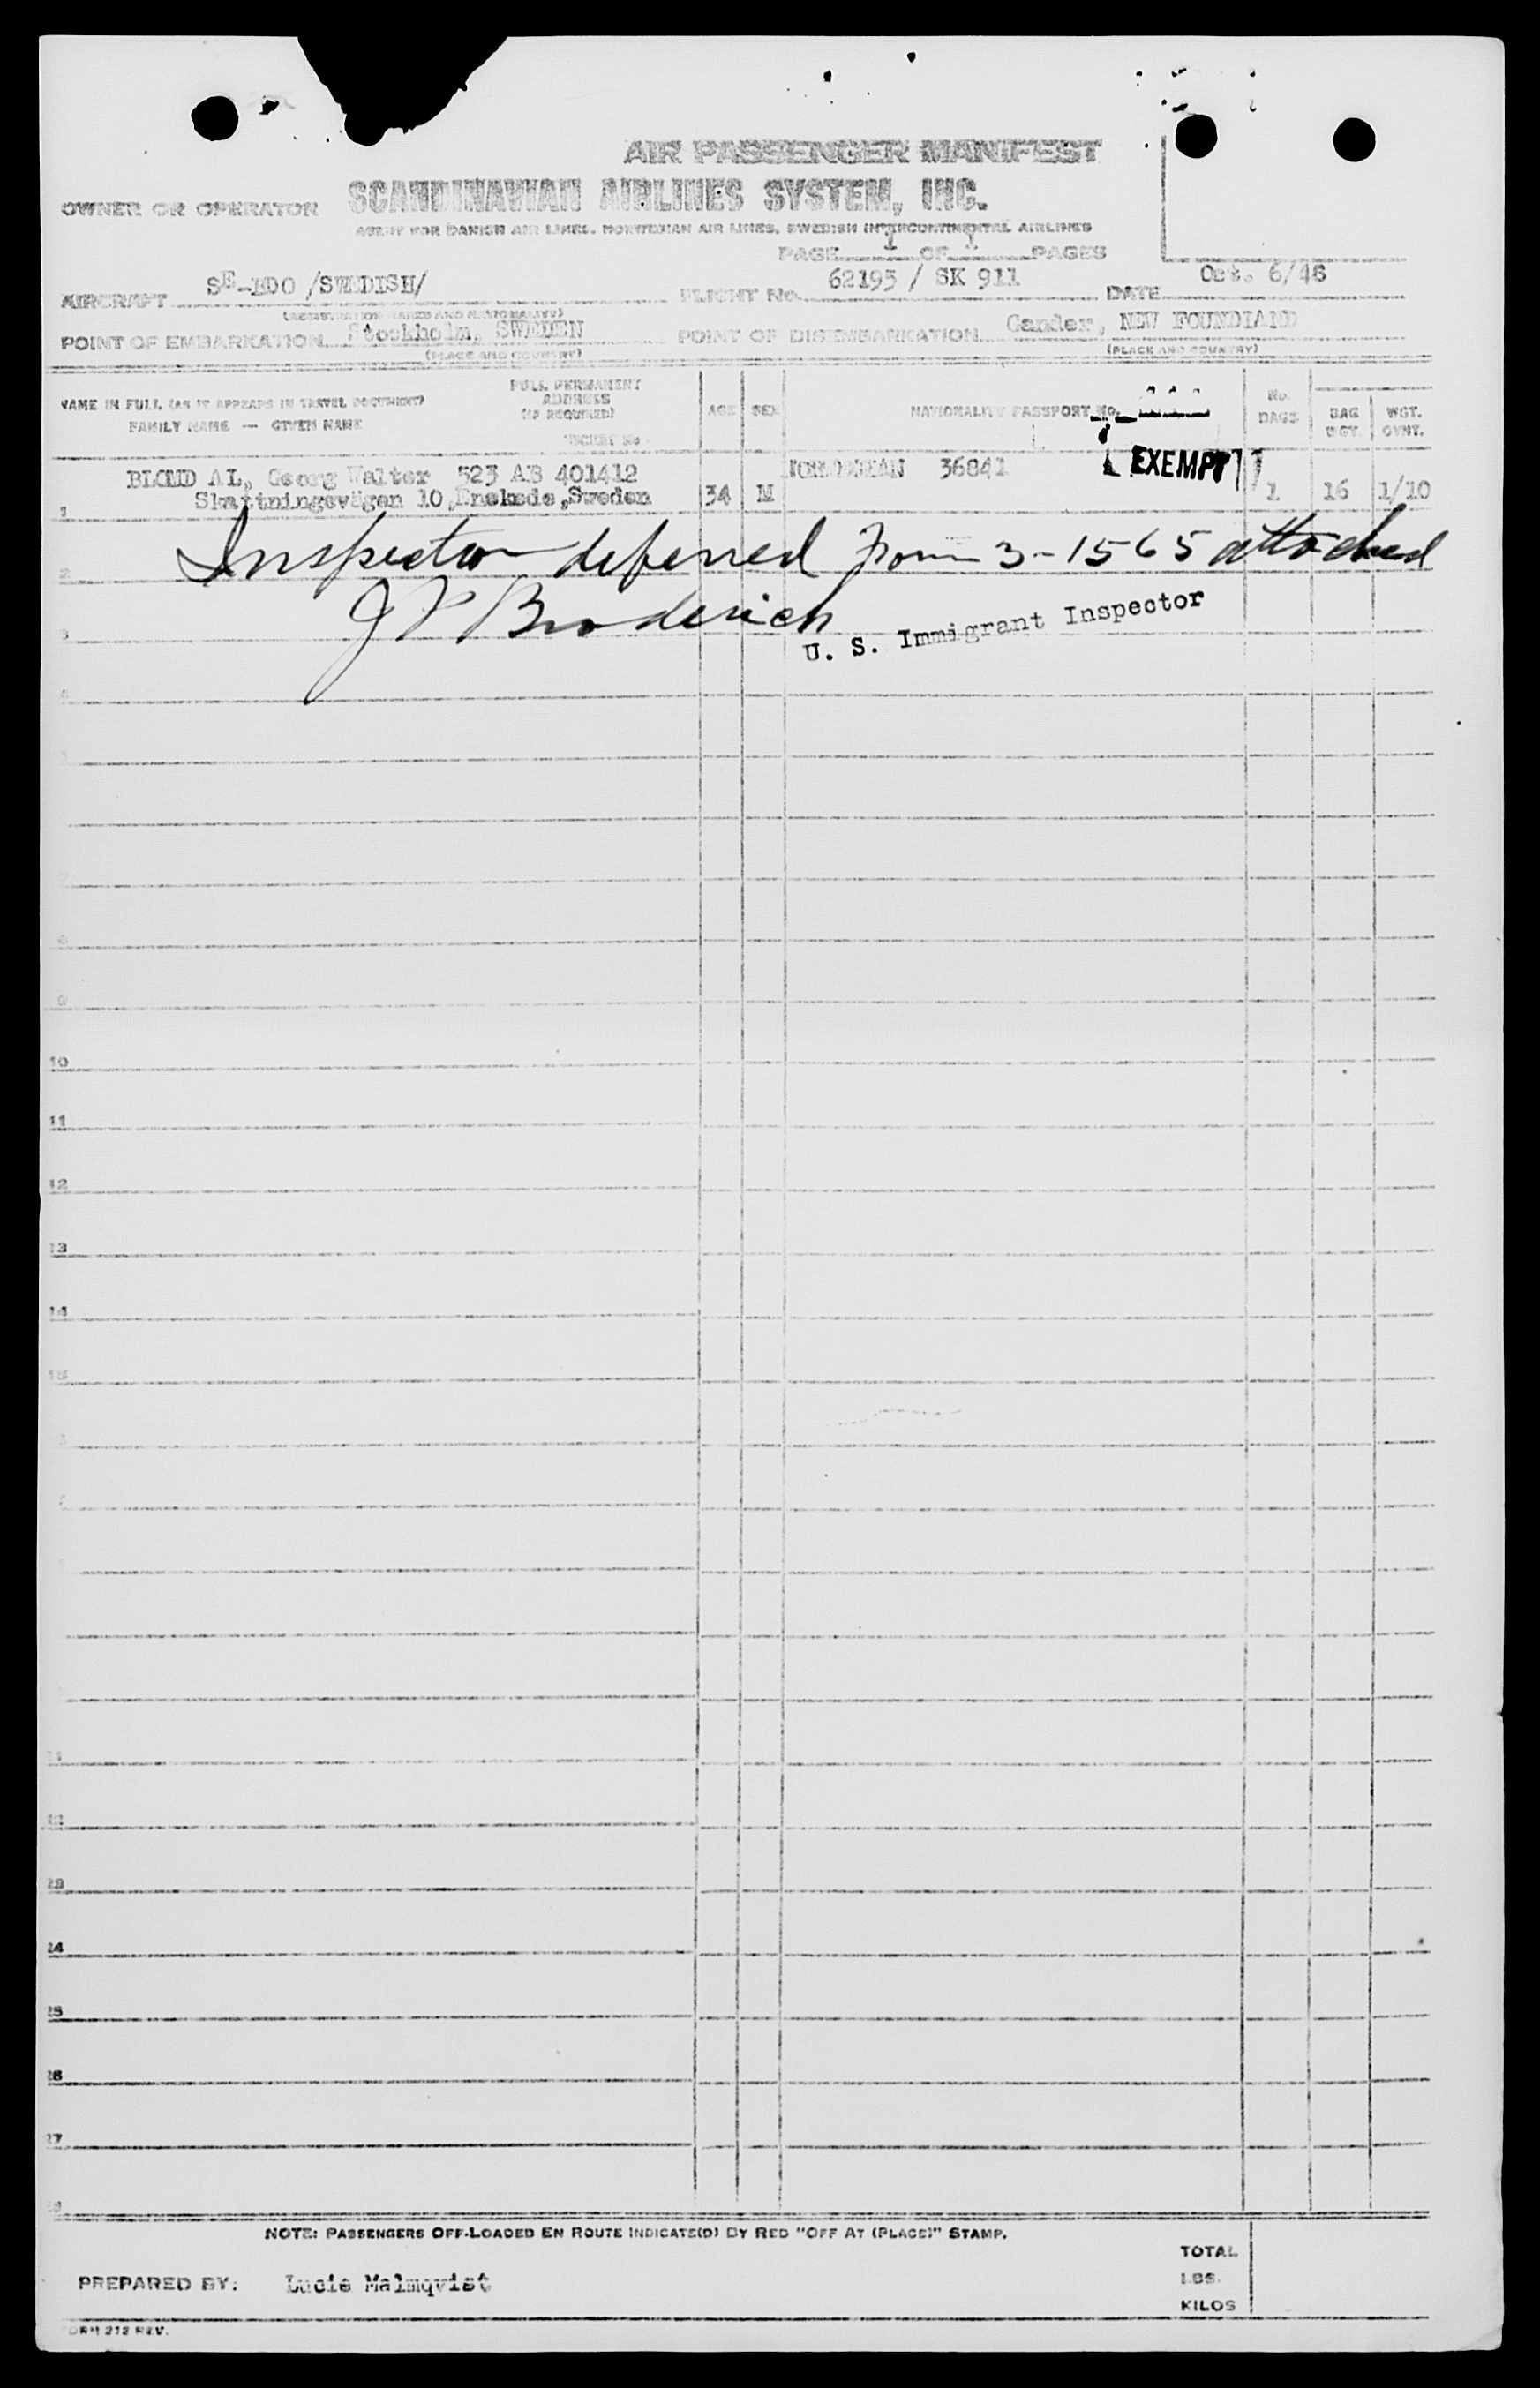 AIR PASSENGER MANIFEST
OWNER OR OPERATOR SCANDINAVIAN AIRLINES SYSTEM, INC.
AGENT FOR DANISH AIR LINES, NORWEGIAN AIR LINES, SWEDISH INTERCONTINENTAL AIRLINES
PAGE 1 OF 1 PAGES
AIRCRAFT SE-BDO /SWEDISH/ FLIGHT No. 62195 / SK 911 DATE Oct. 6/46
(REGISTRATION MARKS AND NATIONALITY)
POINT OF EMBARKATION Stockholm, SWEDEN POINT OF DISEMBARKATION Gander, NEW FOUNDLAND
(PLACE AND COUNTRY) (PLACE AND COUNTRY)
NAME IN FULL (AS IT APPEARS IN TRAVEL DOCUMENT)
FAMILY NAME — GIVEN NAME
FULL PERMANENT
ADDRESS
(IF REQUIRED)
TICKET No
AGE SEX NATIONALITY PASSPORT No.
No. BAGS
BAG WGT.
WGT. OVNT.
EXEMPT
BLOMDAL, Georg Walter 523 AB 401412 NORWEGIAN 36841
1 Skattningsvägen 10, Enskede, Sweden 34 M 1 16 1/10
2 Inspection deferred Form 3-1565 attached
3 J P Broderick
U. S. Immigrant Inspector
4
8
9
10
11
12
13
14
15
22
23
24
25
26
27
28
NOTE: PASSENGERS OFF-LOADED EN ROUTE INDICATE(D) BY RED "OFF AT (PLACE)" STAMP.
PREPARED BY: Lucie Malmqvist
TOTAL
LBS.
KILOS
FORM 212 REV.